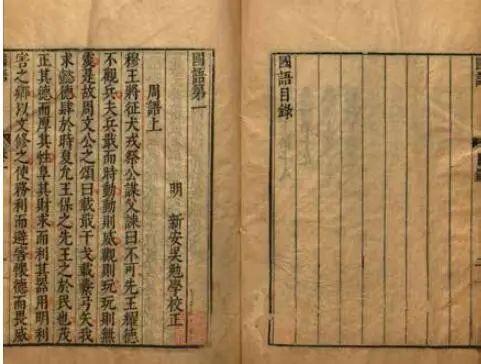 國語目錄
國語第一
明 新安吳勉學校正
周語上
穆王將征犬戎祭公謀父諫曰不可先王耀德
不觀兵夫兵戢而時動動則威觀則玩玩則無
震是故周文公之頌曰載戢干戈載櫜弓矢我
求懿德肆於時夏允王保之先王之於民也茂
正其德而厚其性阜其財求而利其器用明利
害之鄉以文修之使務利而避害懷德而畏威